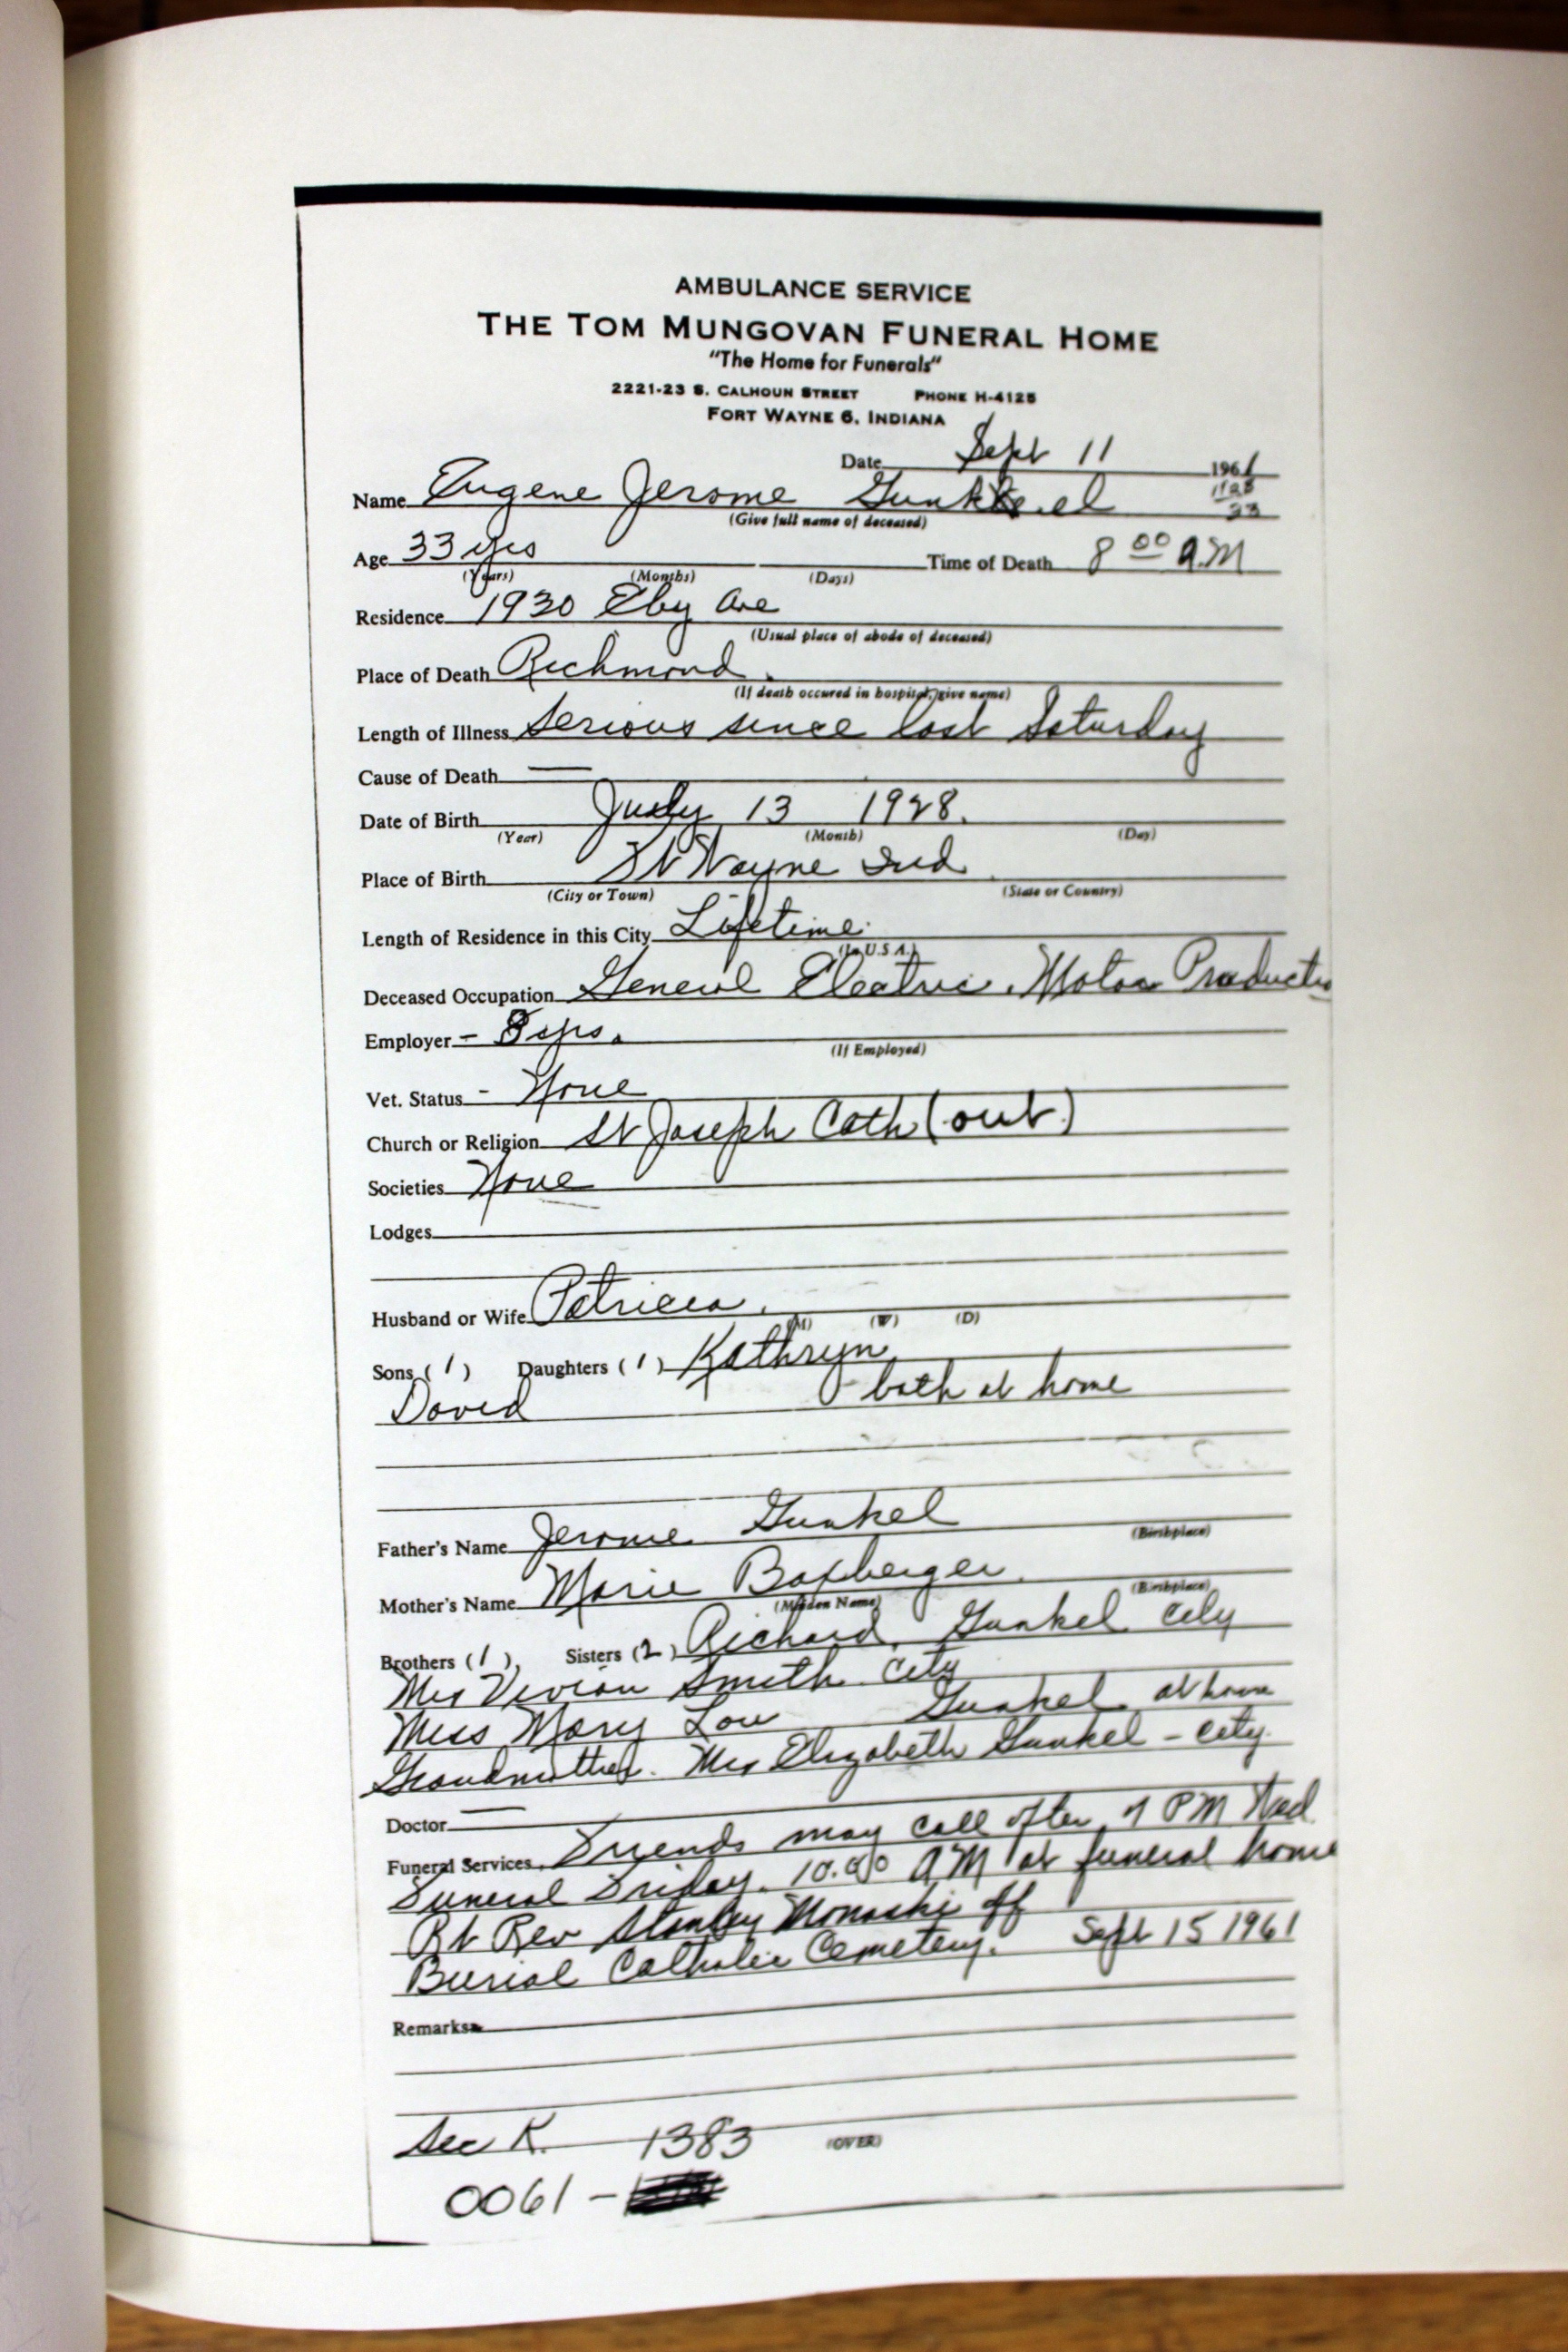 AMBULANCE SERVICE
THE TOM MUNGOVAN FUNERAL HOME
"The Home for Funerals"
2221-23 S. CALHOUN STREET PHONE H-4125
FORT WAYNE 6, INDIANA
Date Sept 11 1961
Name Eugene Jerome Gunkel
(Give full name of deceased)
Age 33 yrs Time of Death 8 00 A.M
(Years) (Months) (Days)
Residence 1930 Eby Ave
(Usual place of abode of deceased)
Place of Death Richmond.
(If death occured in hospital, give name)
Length of Illness Serious since last Saturday
Cause of Death —
Date of Birth July 13 1928.
(Year) (Month) (Day)
Place of Birth Ft Wayne Ind
(City or Town) (State or Country)
Length of Residence in this City Lifetime
(In U.S.A.)
Deceased Occupation General Electric. Motor
Employer - 8 yrs.
(If Employed)
Vet. Status - None
Church or Religion St Joseph Cath (out)
Societies None
Lodges
Husband or Wife Patricia.
(M) (W) (D)
Sons (1) Daughters (1) Kathryn
David - both at home
Father's Name Jerome Gunkel
(Birthplace)
Mother's Name Marie Boxberger.
(Maiden Name) (Birthplace)
Brothers (1) Sisters (2) Richard. Gunkel City
Mrs Vivian Smith City
Miss Mary Lou Gunkel at home
Grandmother. Mrs Elizabeth Gunkel - City
Doctor —
Funeral Services Friends may call after 7 PM Wed
Funeral Friday. 10.00 AM at funeral home
Rt Rev Stanley off
Burial Catholic Cemetery. Sept 15 1961
Remarks
Sec K. 1383 (OVER)
0061 -